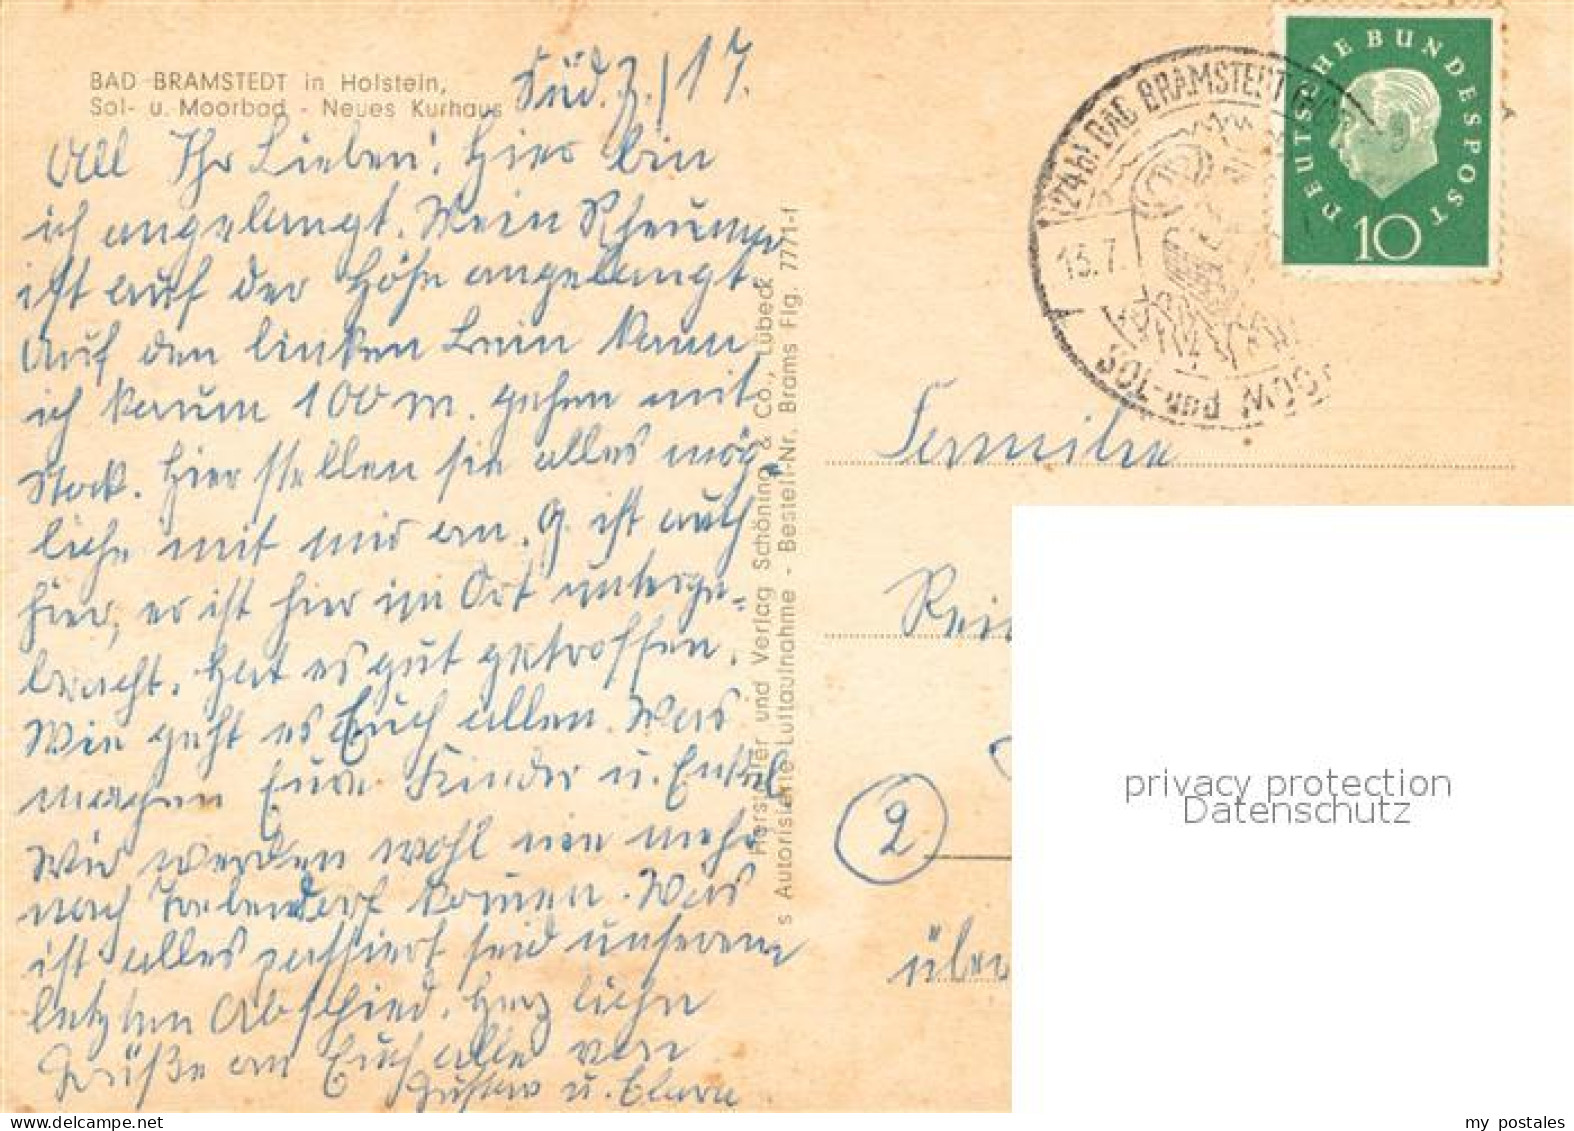 BAD BRAMSTEDT in Holstein,
Sol- u. Moorbad - Neues Kurhaus
Süd. Z./17.
All Ihr Lieben! Hier bin
ich angelangt. Mein Rheuma
ist auf der Höhe angelangt.
Auf den linken Bein kann
ich kaum 100 m. gehen mit
Stock. Hier stellen sie alles mög-
liche mit mir an. G. ist auch
hier, er ist hier im Ort unterge=
bracht. Hat es gut getroffen.
Wie geht es Euch allen. Was
machen Eure Kinder u. Enkel
Wir werden wohl nie mehr
nach kommen. Was
ist alles passiert seid unserem
letzten Abschied. Herzliche
Grüße an Euch alle von
Gustav u. Clara
Hersteller und Verlag Schöning & Co., Lübeck
s Autorisierte Luftaufnahme - Bestell-Nr. Brams Flg. 7771-f
(24b) BAD BRAMSTEDT
13.7.
SOL- und MOOR
DEUTSCHE BUNDESPOST
10
Familie
Rei
2
über
privacy protection
Datenschutz
my postales